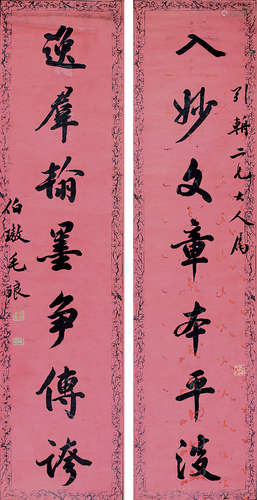 入妙文章本平淡
引軒二兄大人属
逸羣翰墨爭傳誇
伯敔毛